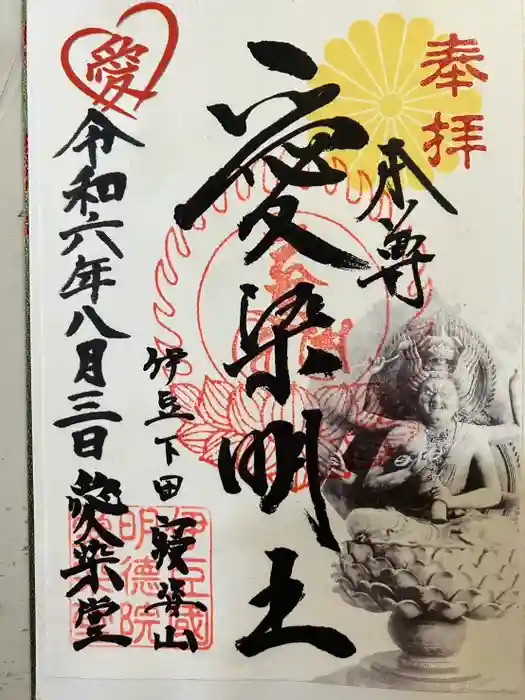 奉拝
本尊
愛染明王
伊豆下田
寝姿山
愛
令和六年八月三日
愛染堂
伊豆國
明德院